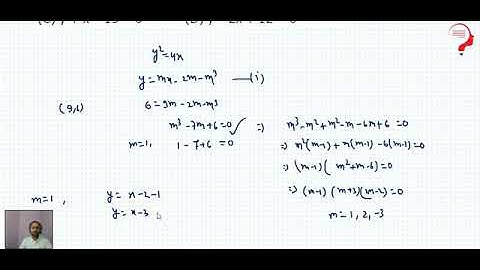 y²=4x
y=mx-2m-m³ —(i)
(9,6) 6=9m-2m-m³
m³-7m+6=0 ✓ => m³-m²+m²-m-6m+6=0
m=1, 1-7+6=0 => m²(m-1)+m(m-1)-6(m-1)=0
=> (m-1)(m²+m-6)=0
m=1, y=x-2-1 => (m-1)(m+3)(m-2)=0
y=x-3 m=1,2,-3